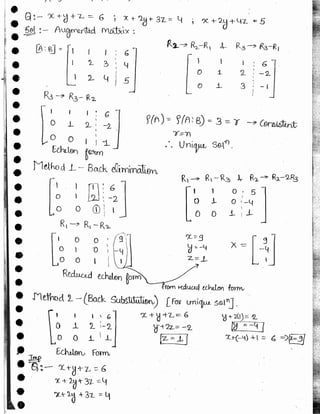 Q:- x+y+z = 6 ; x+2y+3z = 4 ; x+2y+4z = 5
Sol:- Augmented matrix :
[A:B] = [ 1 1 1 : 6
1 2 3 : 4
1 2 4 : 5 ]
R2→R2-R1 & R3→R3-R1
[ 1 1 1 : 6
0 1 2 : -2
0 1 3 : -1 ]
R3→ R3-R2
[ 1 1 1 : 6
0 1 2 : -2
0 0 1 : 1 ]
Echelon form
ρ(A) = ρ(A:B) = 3 = r → Consistent
r=n
∴ Unique Solⁿ.
Method 1 - Back elimination
[ 1 1 1 : 6
0 1 2 : -2
0 0 1 : 1 ]
R1→R1-R3 & R2→R2-2R3
[ 1 1 0 : 5
0 1 0 : -4
0 0 1 : 1 ]
R1→R1-R2
[ 1 0 0 : 9
0 1 0 : -4
0 0 1 : 1 ]
Reduced echelon form
x=9
y=-4
z=1
X = [ 9
-4
1 ]
from reduced echelon form
Method 2 - (Back Substitution) [For unique solⁿ].
[ 1 1 1 : 6
0 1 2 : -2
0 0 1 : 1 ]
Echelon Form
x+y+z = 6
y+2z = -2
z = 1
y = -4
x+(-4)+1 = 6 ⇒
Imp
Q:- x+y+z = 6
x+2y+3z = 4
x+2y+3z = 4